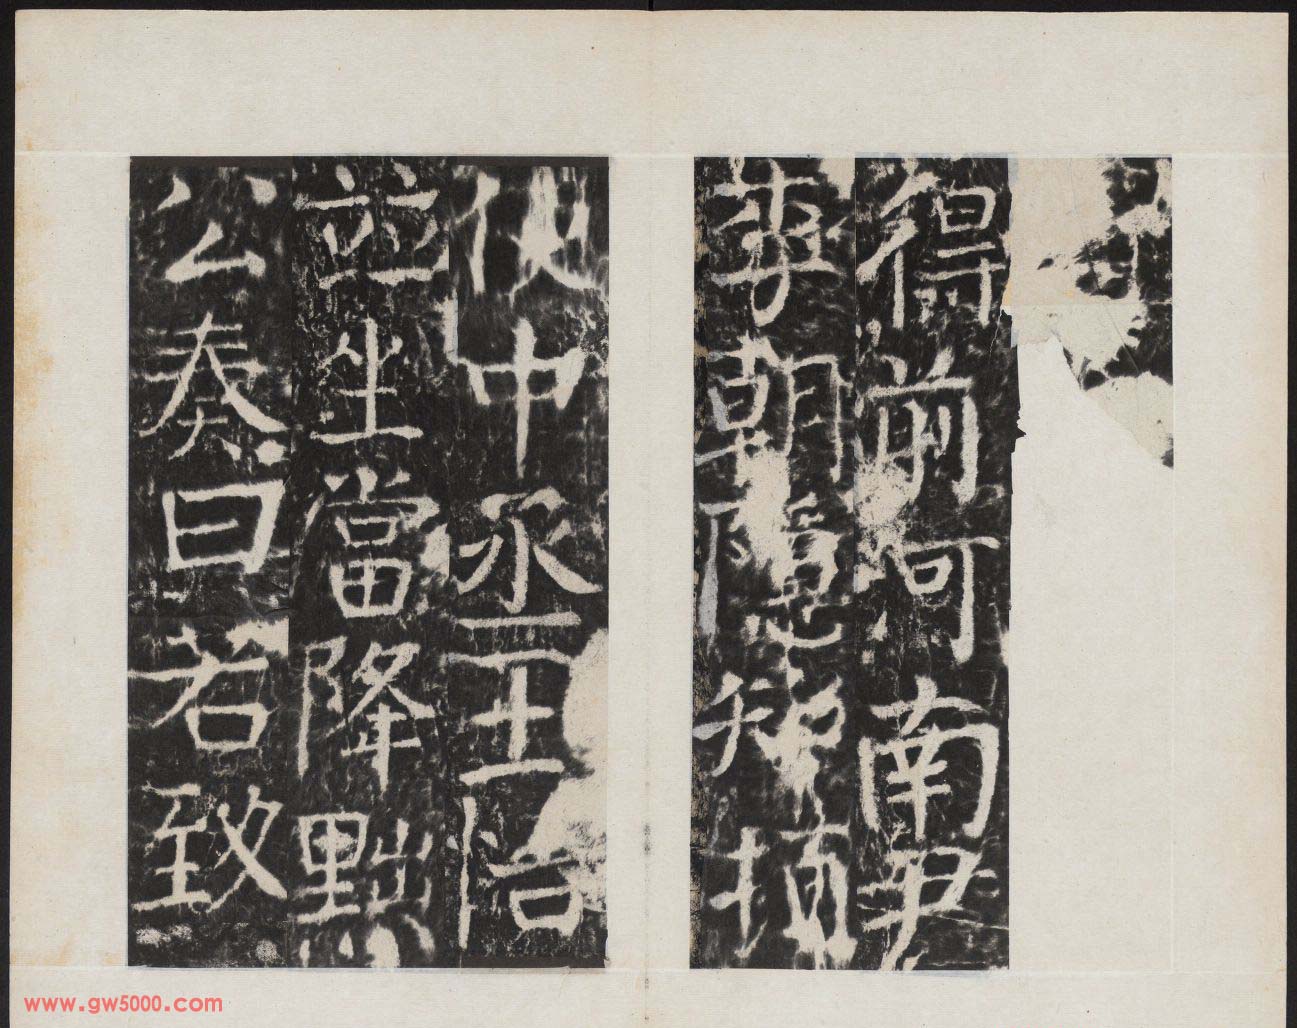 得前河南尹
李朝隱知頓
使中丞王怡
並坐當降黜
公奏曰若致
www.gw5000.com